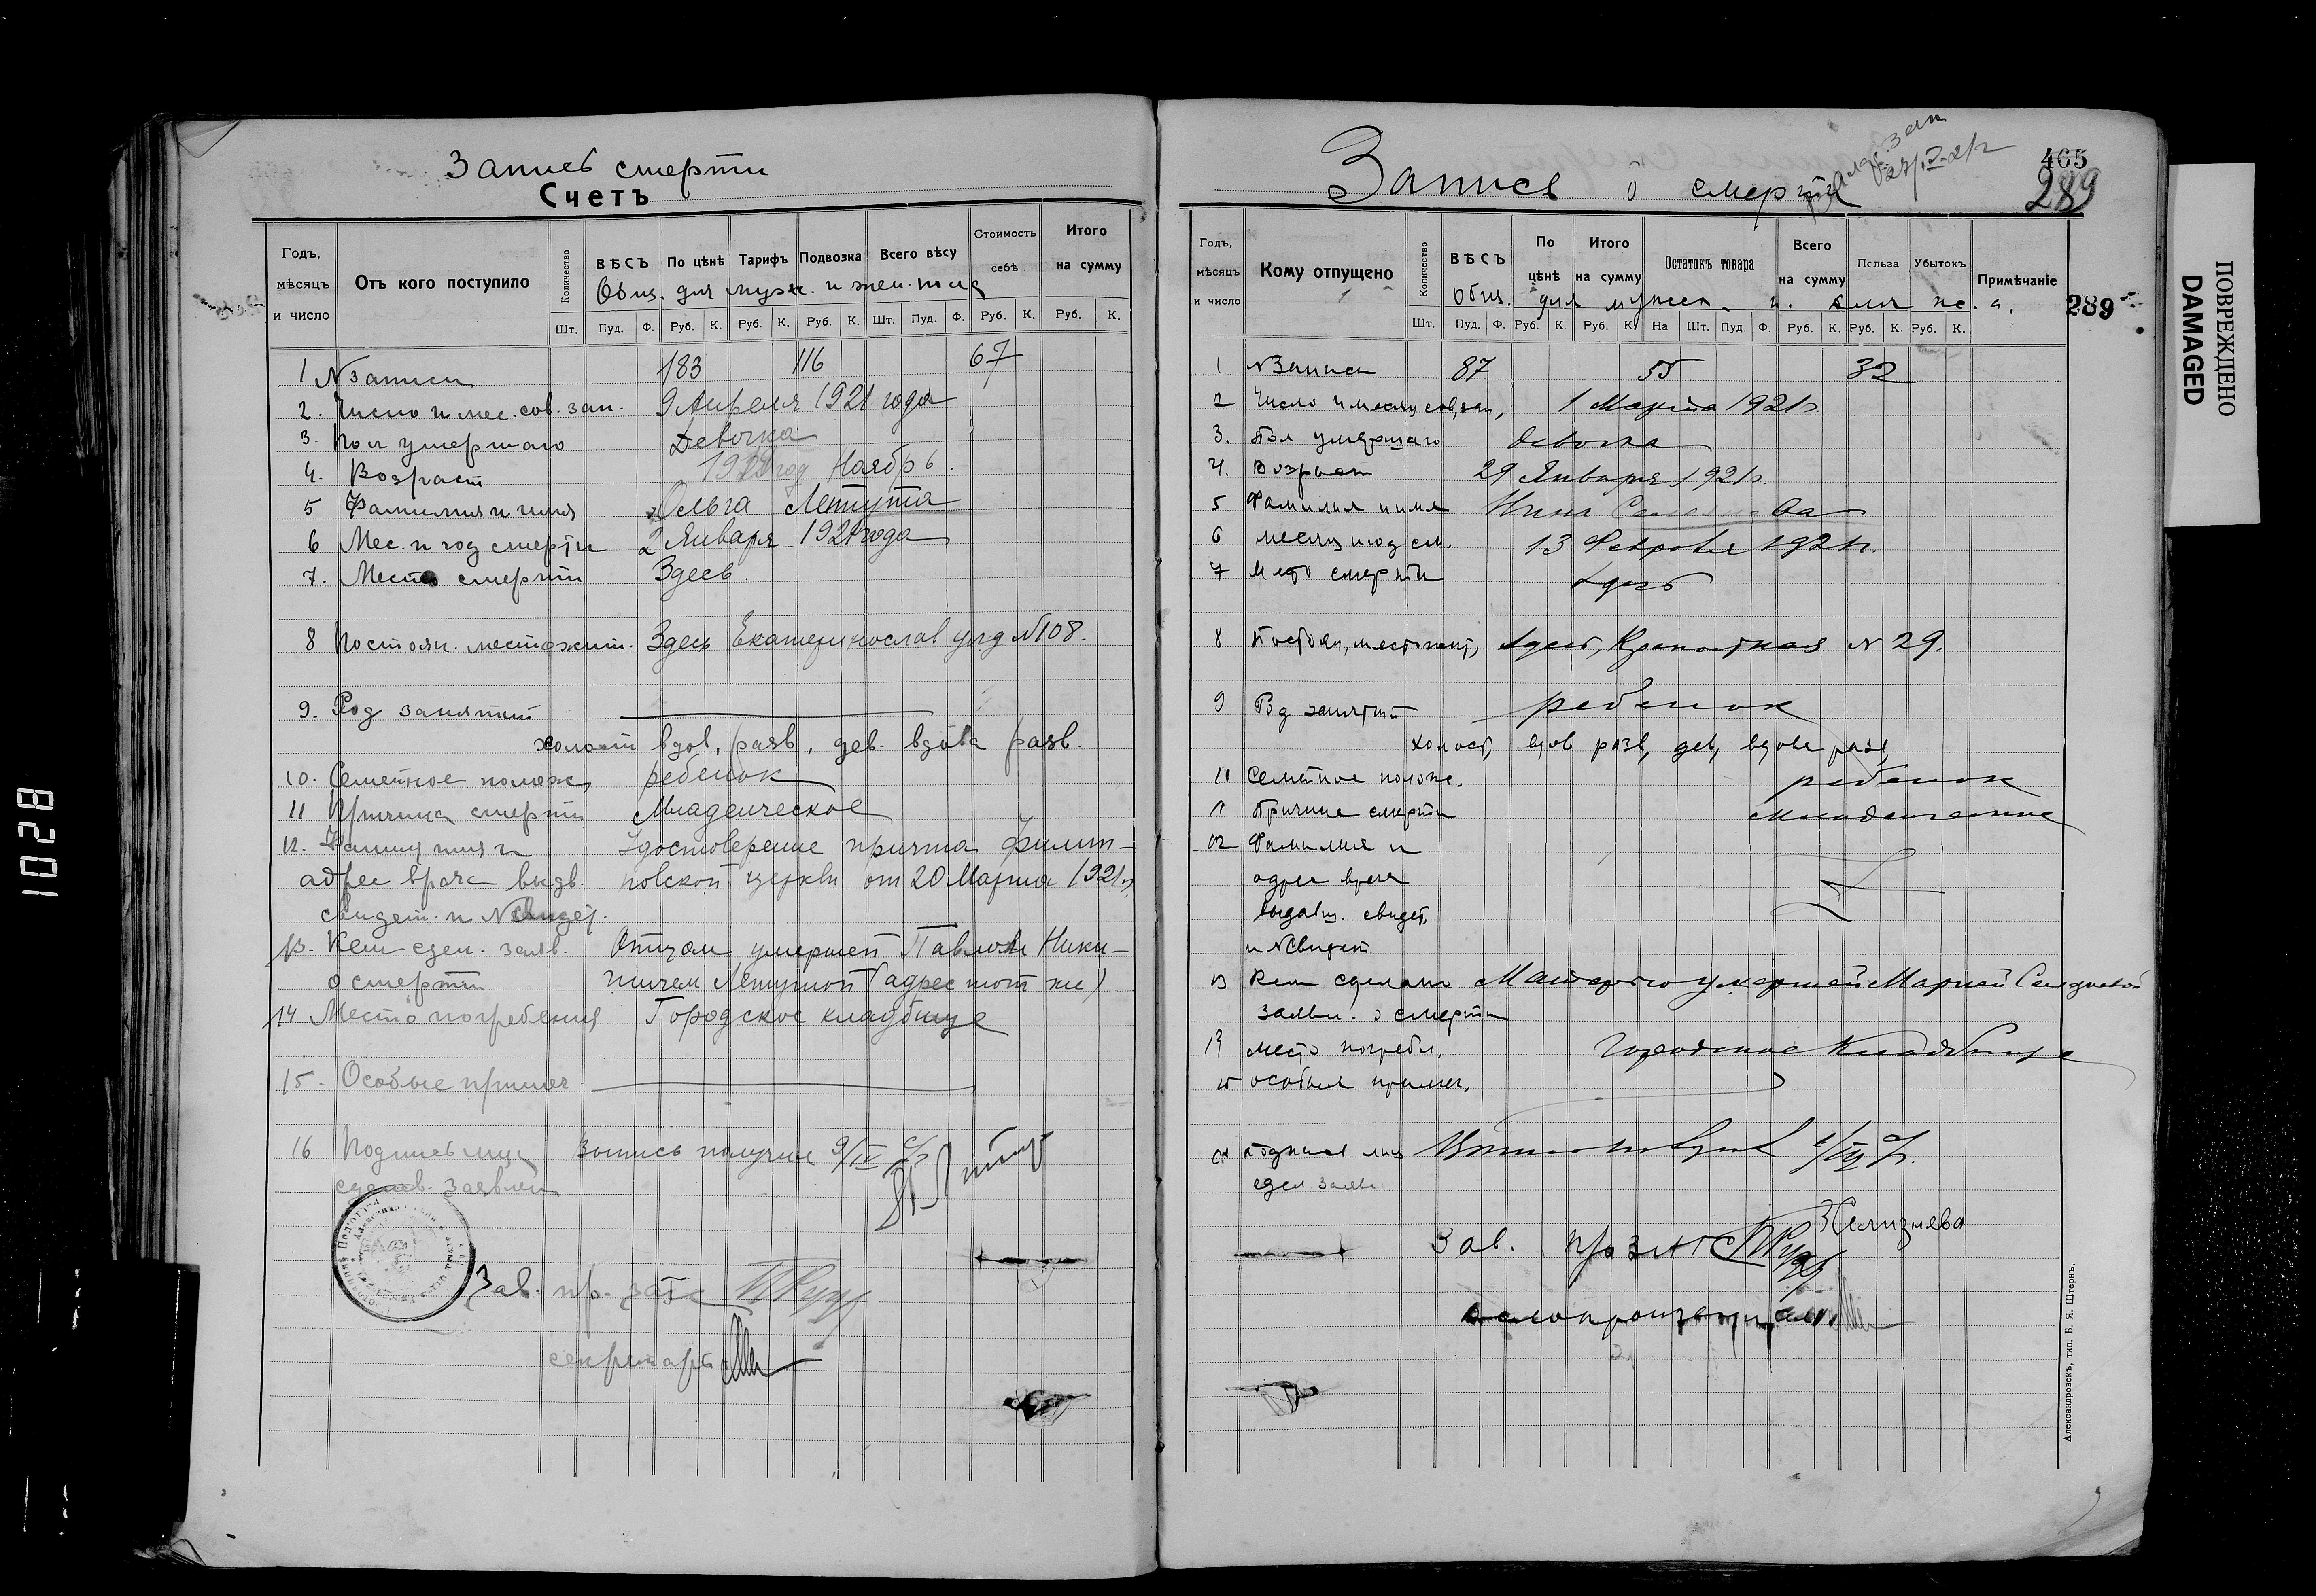 Запись смерти
Счетъ
Годъ, мѣсяцъ и число
Отъ кого поступило
Количество
ВѢСЪ
По цѣнѣ
Тарифъ
Подвозка
Всего вѣсу
Стоимость себѣ
Итого на сумму
Общ. для муж. и жен. пола
Шт. Пуд. Ф. Руб. К. Руб. К. Руб. К. Шт. Пуд. Ф. Руб. К. Руб. К.
1 № записи 183 116 67
2. Число и мес. сов. зап. 9 Апреля 1921 года
3. Пол умершаго Девочка
4. Возраст Ноябрь.
5 Фамилия и имя Ольга
6 Мес. и год смерти 2 Января 1921 года
7. Место смерти Здесь.
8 Постоян. местожит. Здесь Екатеринослав ул д №108.
9. Род занятий
холост вдов, разв, дев. вдова разв.
10. Семейное полож. ребенок
11 Причина смерти Младенческое
12. Фамил имя и Удостоверение причта
адрес врача выдв. церкви от 20 Марта 1921
свидет. и № свидет.
13. Кем сдел. заяв. Отцом умершей Павлом Ники-
о смерти (адрес тот же)
14 Место погребения Городское кладбище
15. Особые примеч.
16 Подпись лиц Выпись получил 9/IV
сделав. заявлен
Зав. пр. загс
секретарь
Запись о смерти
465
289
Годъ, мѣсяцъ и число
Кому отпущено
Количество
ВѢСЪ
По цѣнѣ
Итого на сумму
Остатокъ товара
Всего на сумму
Польза
Убытокъ
Примѣчаніе
Общ. для мужск. и
289
Шт. Пуд. Ф. Руб. К Руб. К На Шт. Пуд. Ф. Руб. К. Руб. К. Руб. К.
1 № Записи 87 55 32
2 Число и месяц сов, зап, 1 Марта 1921 г.
3. Пол умершаго девочка
4. Возраст 29 Января 1921 г.
5 Фамилия и имя Нина
6 месяц и год см. 13 Февраля 1921 г.
7 Место смерти здесь
8 Постоян, местожит, здесь, Крепостная № 29.
9 Род занятий ребенок
холост, вдов разв, дев, вдова разв,
10 Семейное полож. ребенок
11 Причина смерти младенческое
12 Фамилия и
адрес врача
выдавш. свидет,
и № свидет
13 Кем сделано Матерью умершей Марией
заявл. о смерти
14 место погребл. городское кладбище
15 особыя примеч.
16 подписи лиц
сдел заяв
Зав.
делопроизводитель
Александровскъ, тип. Б. Я. Штернъ.
ПОВРЕЖДЕНО
DAMAGED
1028